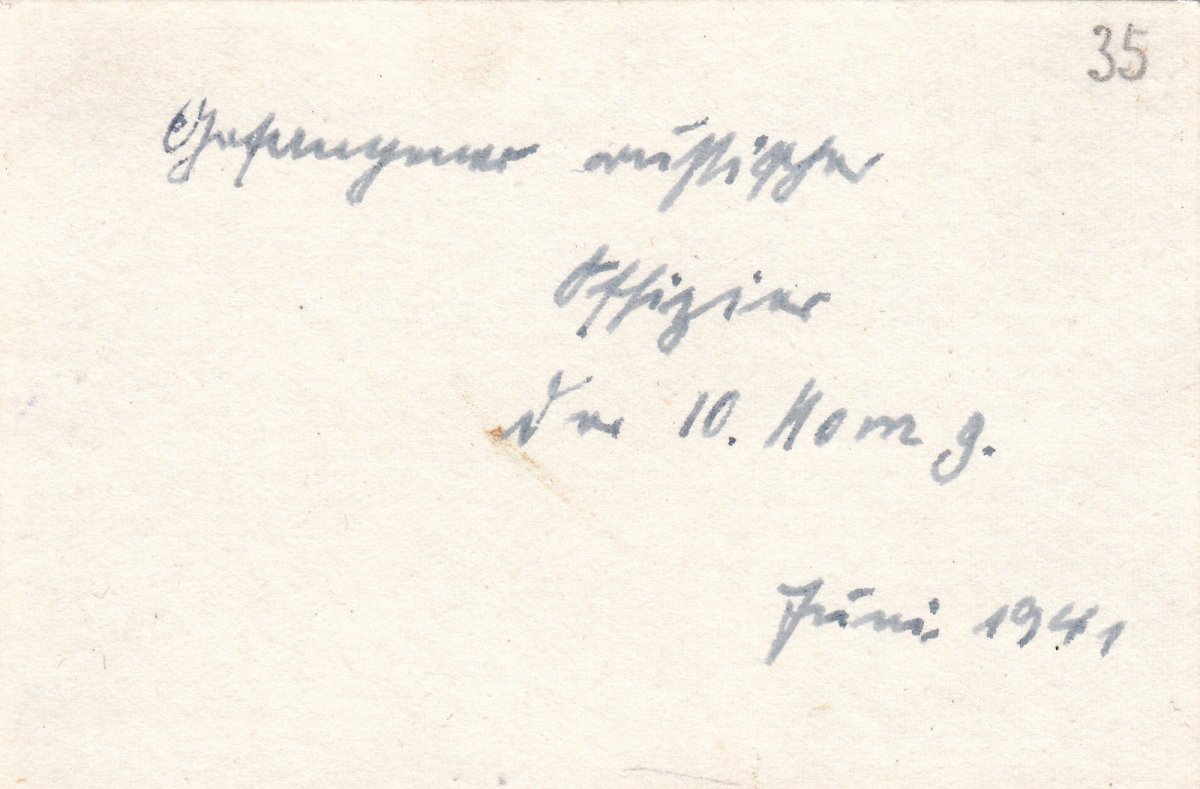 35
Gefangener russischer
Offizier
der 10. Komp.
Juni 1941